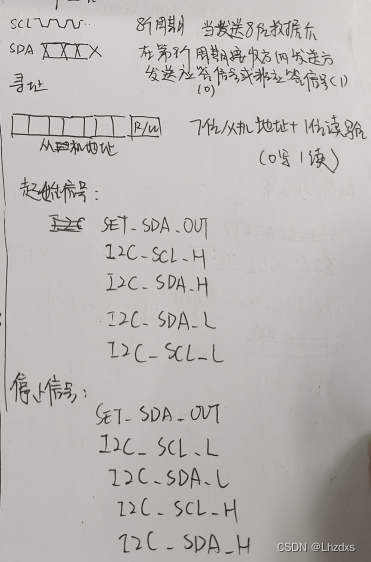 SCL 8个周期 当发送8位数据后
SDA 在第9个周期接收方向发送方
发送应答信号或非应答信号(1)
(0)
寻址
R/W 7位从机地址+1位读写位
从机地址 (0写1读)
起始信号:
SET_SDA_OUT
I2C_SCL_H
I2C_SDA_H
I2C_SDA_L
I2C_SCL_L
停止信号:
SET_SDA_OUT
I2C_SCL_L
I2C_SDA_L
I2C_SCL_H
I2C_SDA_H
CSDN @Lhzdxs